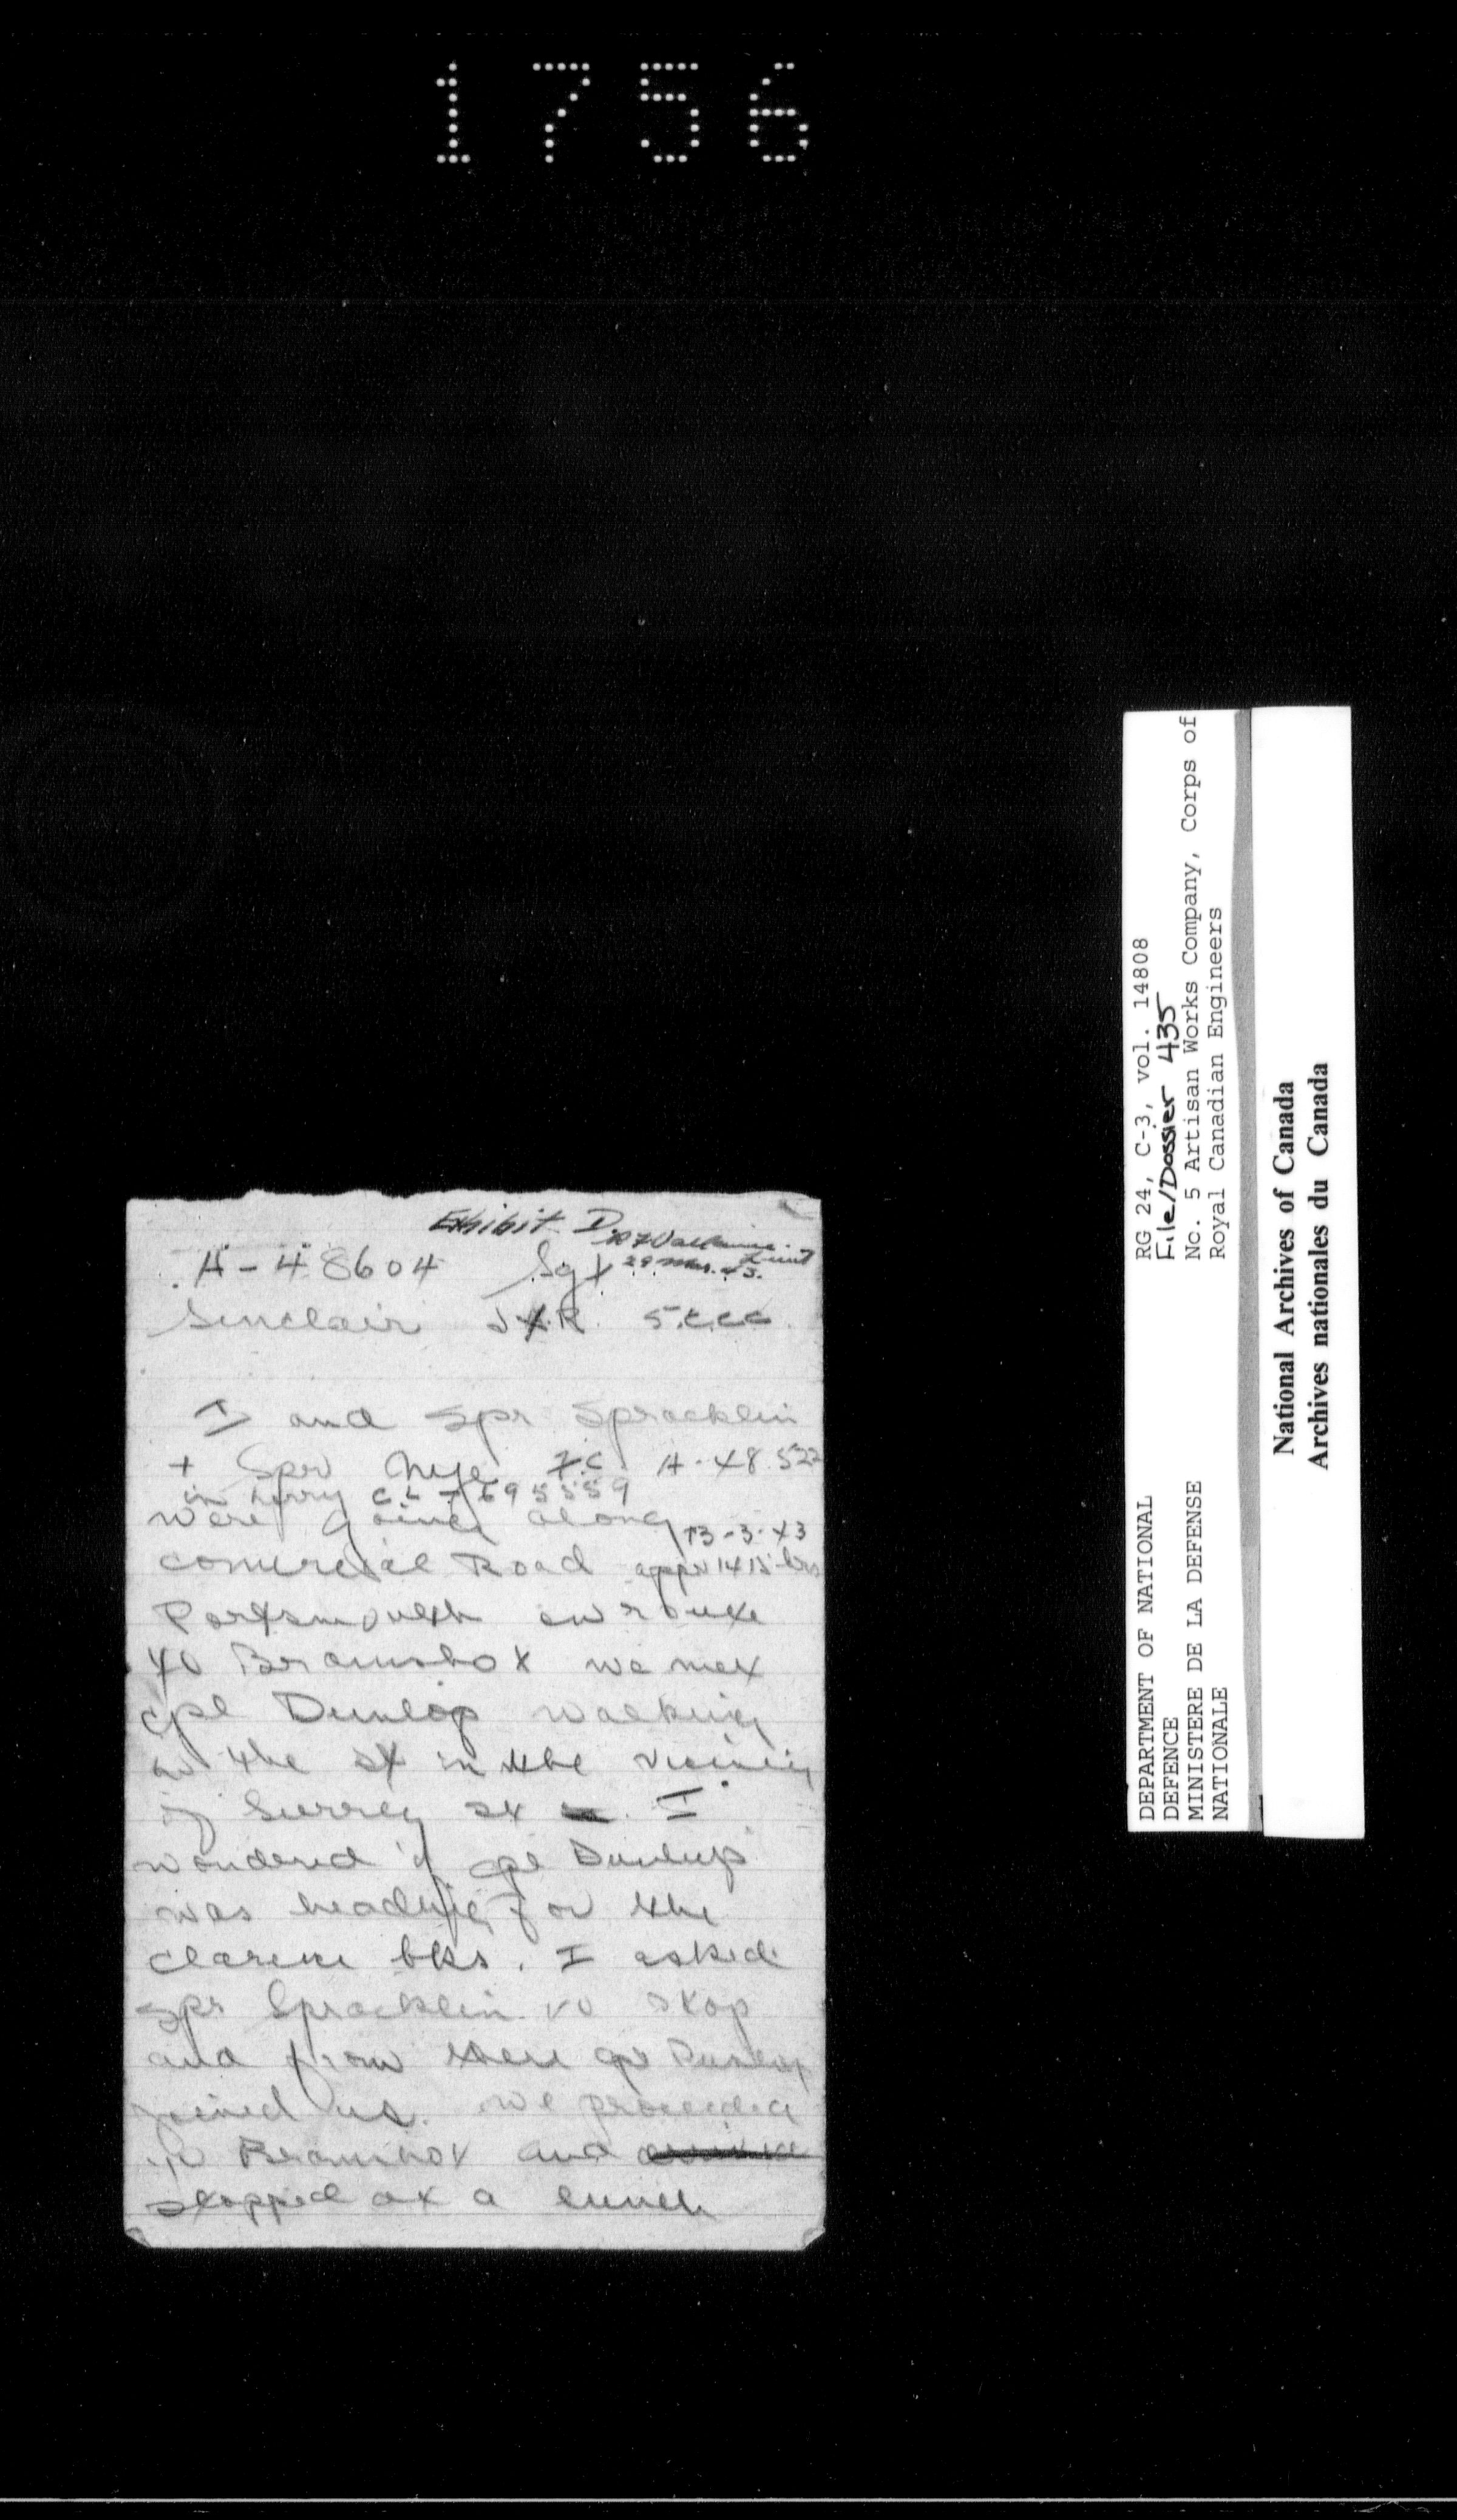 1756
Exhibit D.
29 Mar. 43.
H-48604 Sgt
Sinclair J.R.
I and Spr Spracklin
+ Spr Nye F.C. H.48522
in lorry CL 4695559
were going along 13-3-43
comercial Road appr 1415 hrs
Portsmouth enroute
to Bramshot we met
cpl Dunlop walking
on the st in the vicinity
of Surrey st I
wondered if cpl Dunlop
was heading for the
clarence bks. I asked
Spr Spracklin to stop
and from there cpl Dunlop
joined us. we proceeded
to Bramshot and
stopped at a lunch
RG 24, C-3, vol. 14808
File/Dossier 435
No. 5 Artisan Works Company, Corps of
Royal Canadian Engineers
DEPARTMENT OF NATIONAL
DEFENCE
MINISTERE DE LA DEFENSE
NATIONALE
National Archives of Canada
Archives nationales du Canada